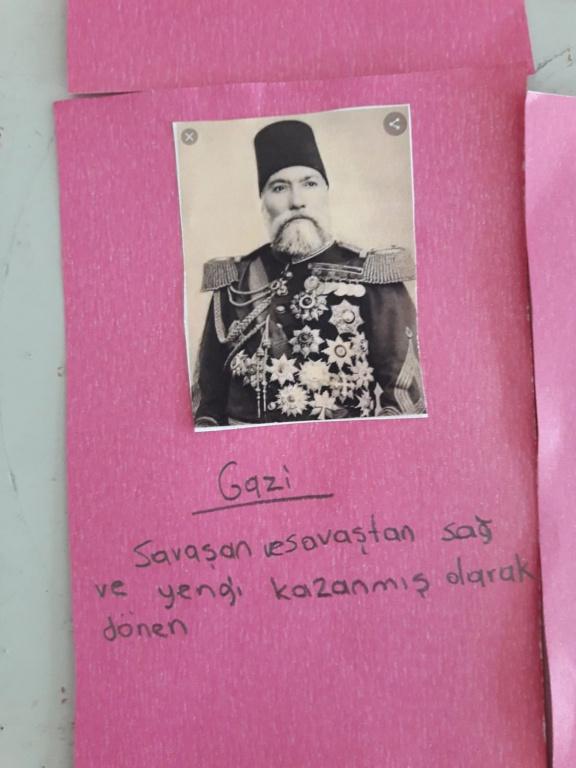 Gazi
Savaşan ve savaştan sağ
ve yengi kazanmış olarak
dönen